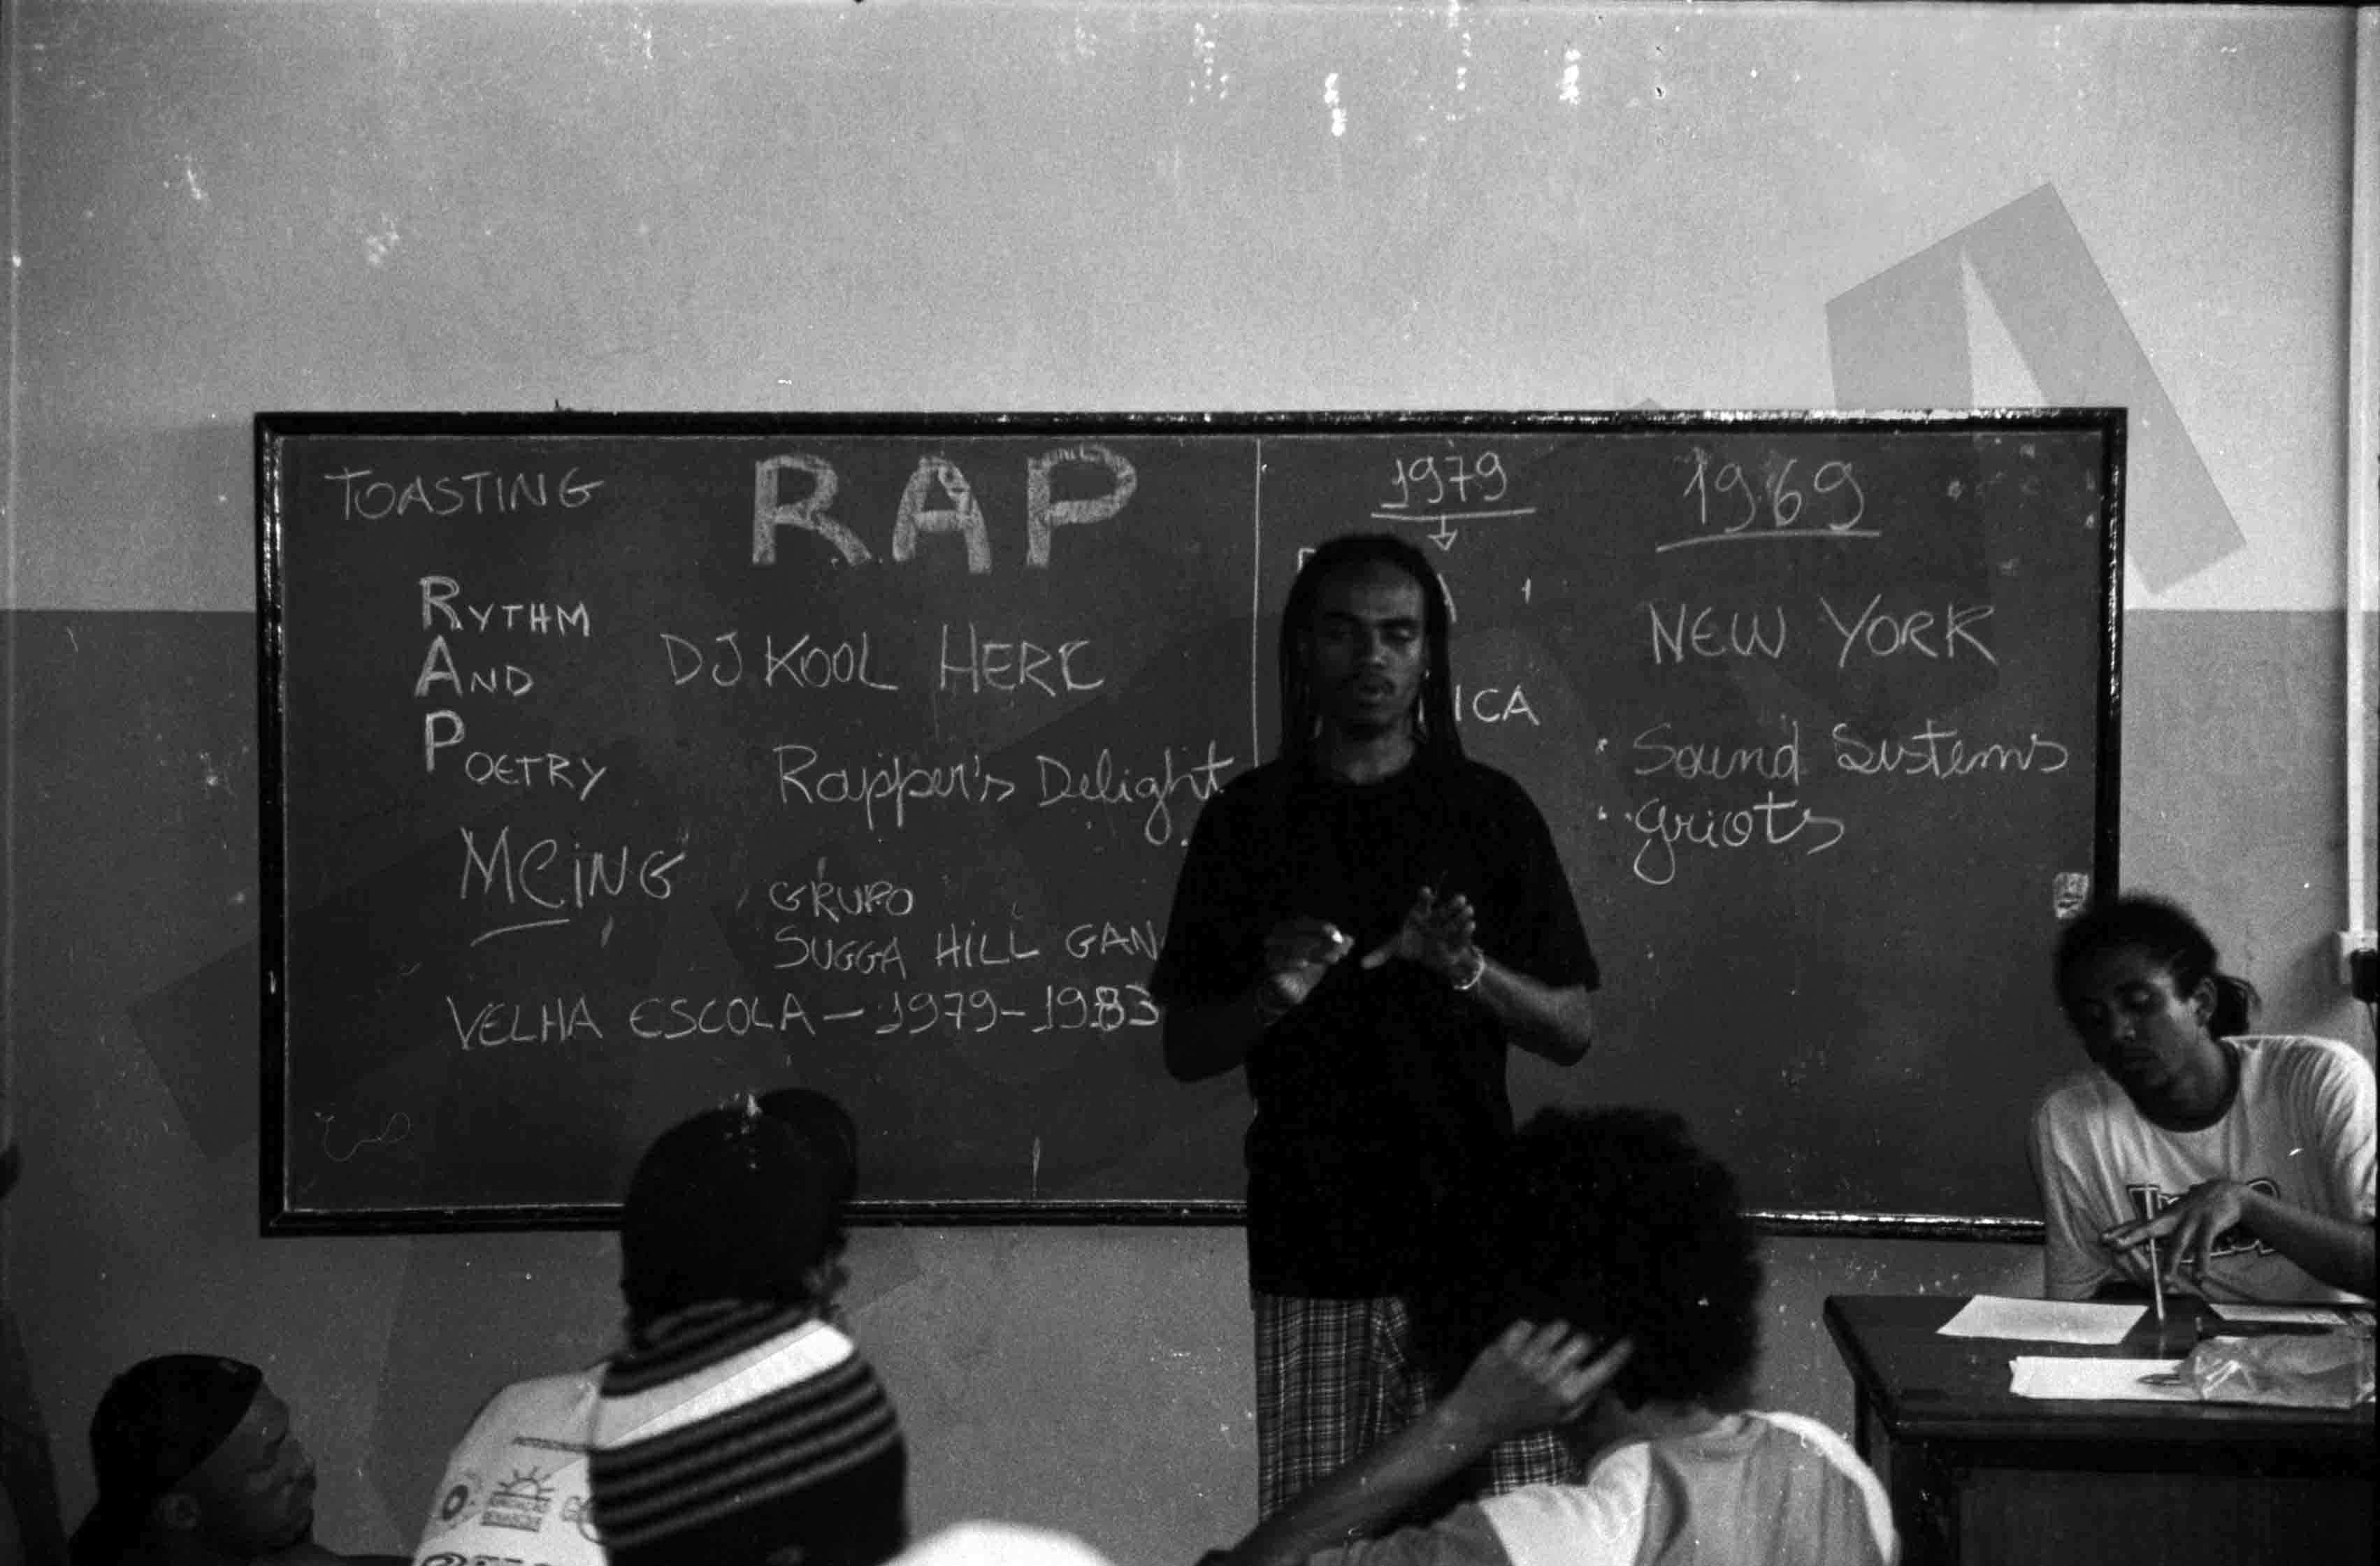 TOASTING
RAP
RYTHM
AND
POETRY
DJ KOOL HERC
Rapper's Delight
MCING
GRUPO
SUGGA HILL GAN
VELHA ESCOLA - 1979-1983
1979
ICA
1969
NEW YORK
• Sound Sustems
• griots